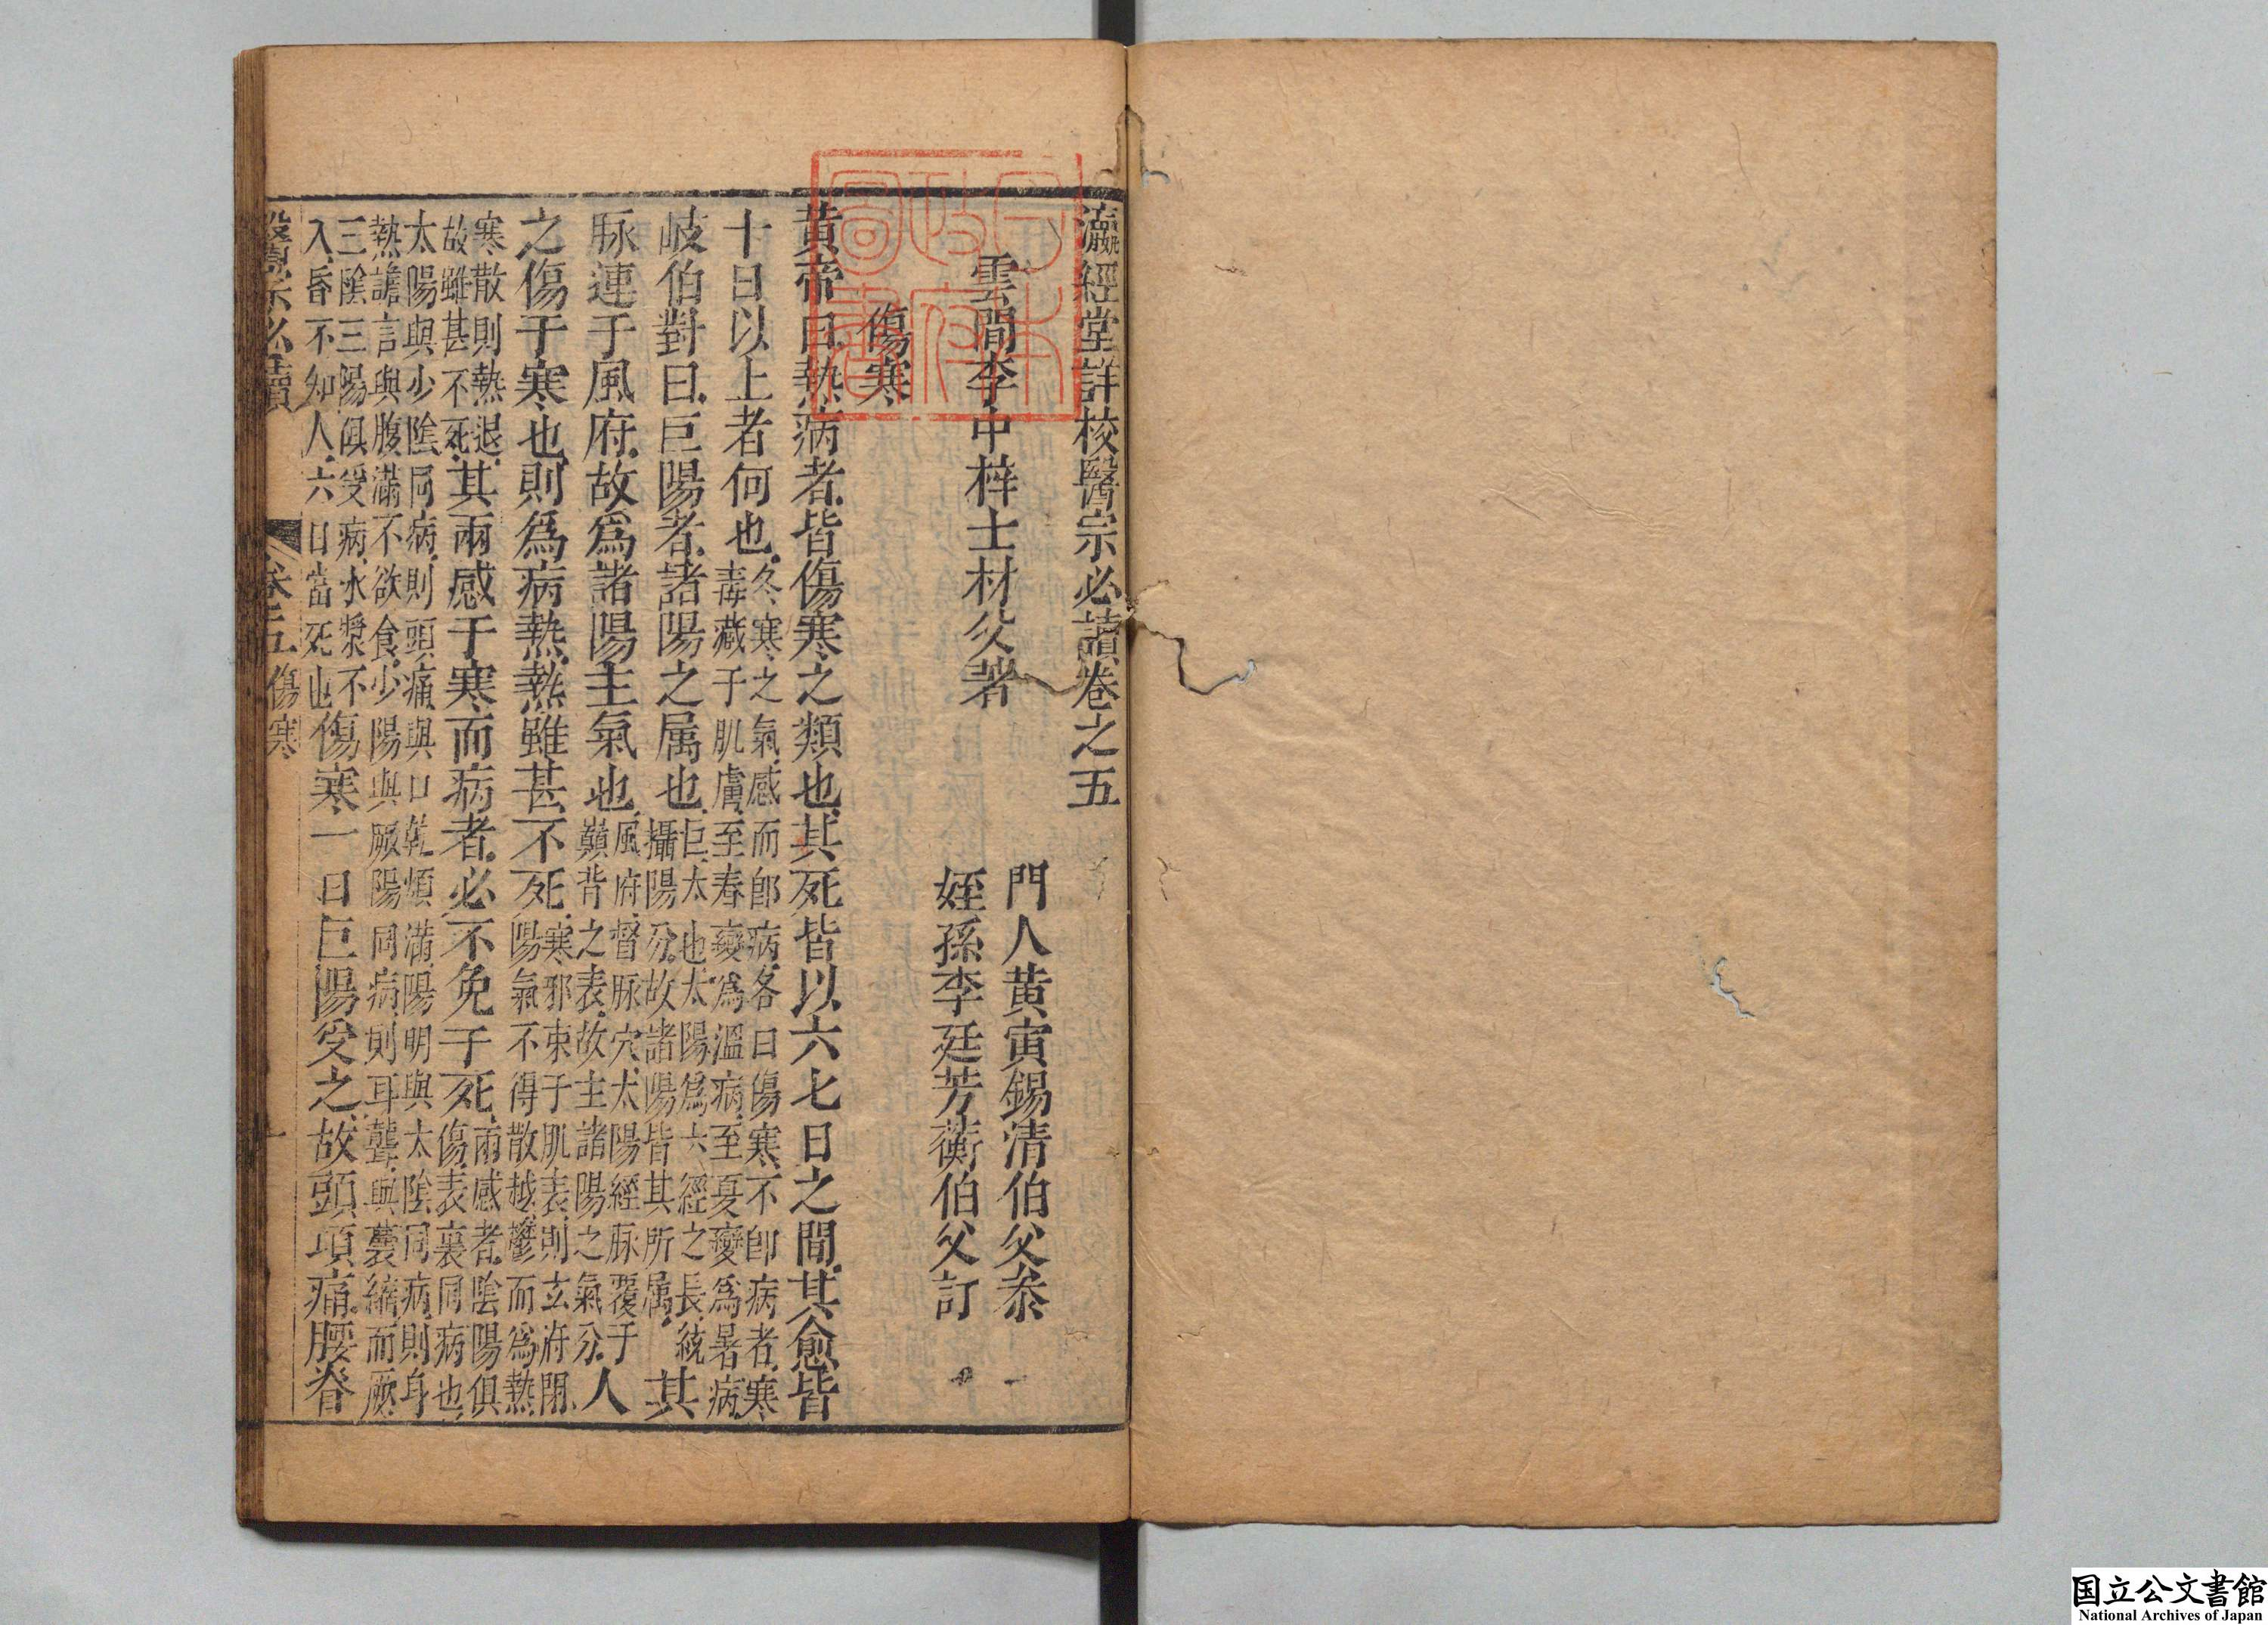 瀛經堂詳校醫宗必讀卷之五
雲間李中梓士材父著
門人黄寅錫清伯父叅
姪孫李廷芳蘅伯父訂
傷寒
黄帝曰熱病者皆傷寒之類也其死皆以六七日之間其愈皆
十日以上者何也冬寒之氣感而卽病各曰傷寒不卽病者寒
毒藏于肌膚至春變爲溫病至夏變爲暑病
岐伯對曰巨陽者諸陽之属也巨太也太陽爲六經之長統
攝陽分故諸陽皆其所属其
脉連于風府故爲諸陽主氣也風府督脉穴太陽經脉覆于
巔背之表故主諸陽之氣分人
之傷于寒也則爲病熱熱雖甚不死寒邪束于肌表則玄府閉
陽氣不得散越鬱而爲熱
寒散則熱退
故雖甚不死其兩感于寒而病者必不免于死兩感者陰陽俱
傷表裏同病也
太陽與少陰同病則頭痛與口乾煩滿陽明與太陰同病則身
熱譫言與腹滿不欲食少陽與厥陽同病則耳聾與囊縮而厥
三陰三陽俱受病水漿不
入昏不知人六日當死也傷寒一日巨陽受之故頭項痛腰脊
醫宗必讀
卷五傷寒
一
内閣文庫
国立公文書館
National Archives of Japan